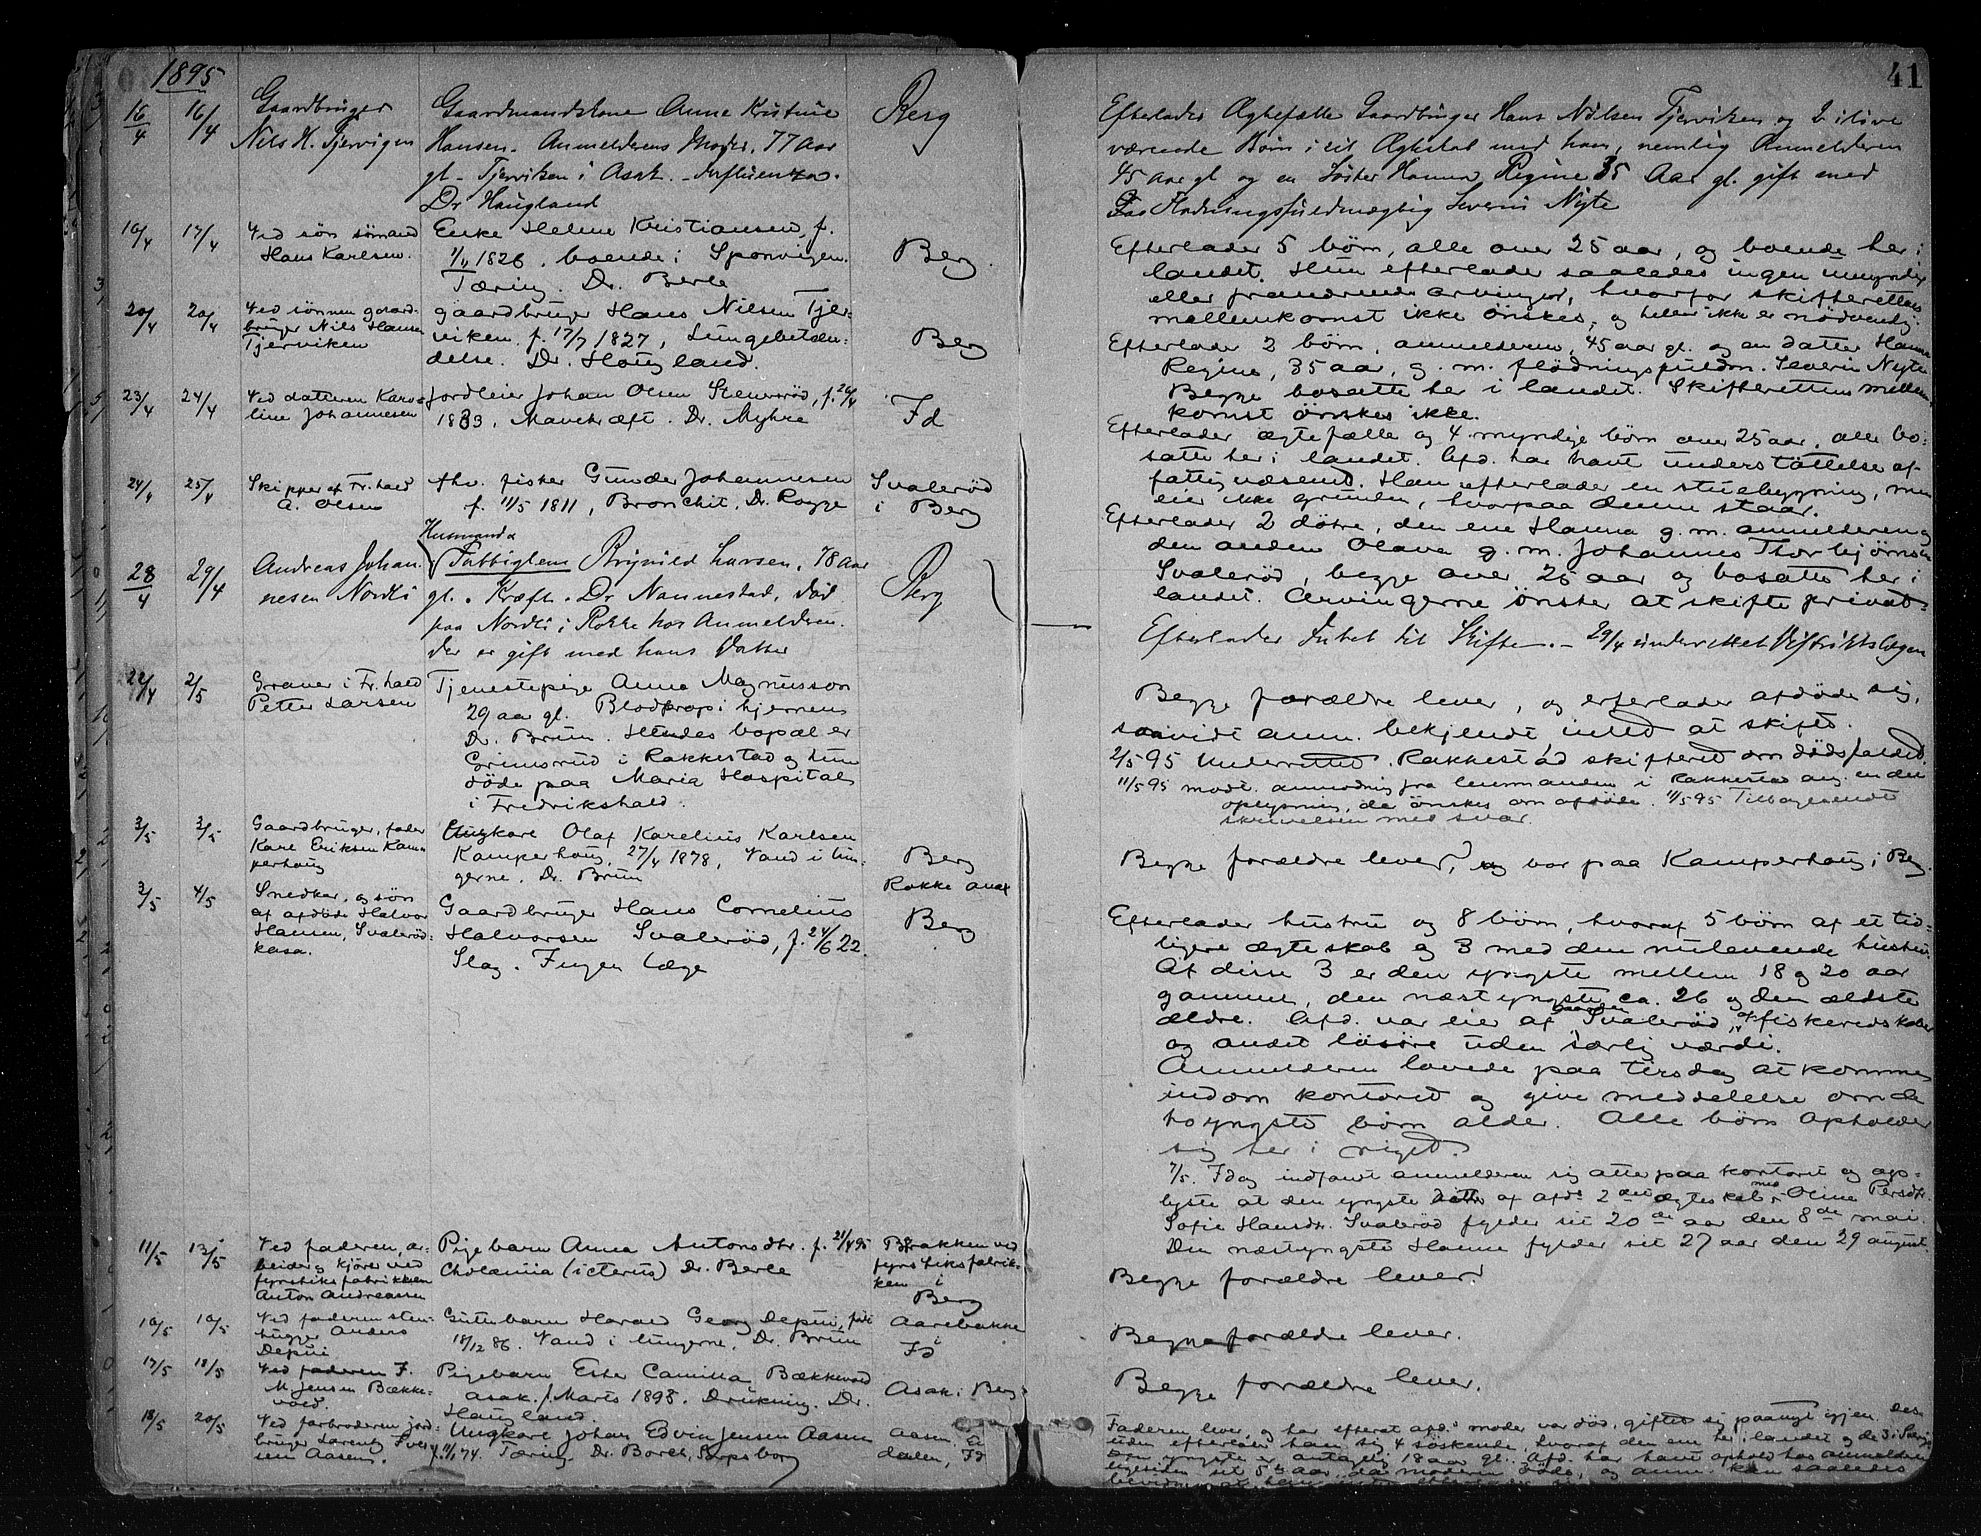 1895
41
16/4 16/4 Gaardbruger Nils H. Tjervigen
Gaardmandskone Anne Kristine
Hansen. Anmelderens Moder, 77 Aar
gl. Tjerviken i Asak. Influenza.
Dr Haugland
Berg
Efterlader Ægtefælle Gaardbruger Hans Nilsen Tjerviken og 2 ilive
værende Børn i sit Ægteskab med ham, nemlig Anmelderen
45 Aar gl og en Søster Hanna Regine 35 Aar gl. gift med
Flødningsfuldmægtig Severin Nyte
16/4 17/4 Ved søn sømand
Hans Karlsen.
Enke Helene Kristiansen, f.
1826, boende i Sponvigen.
Tæring. Dr. Berle
Berg.
Efterlader 5 børn, alle over 25 aar, og boende her i
landet. Hun efterlader saaledes ingen umyndig
eller fraværende arvinger, hvorfor skifterettens
mellemkomst ikke önskes, og heller ikke er nødvendig.
20/4 20/4 Ved sönnen gaard-
bruger Nils Hansen
Tjerviken
gaardbruger Hans Nilsen Tjer-
viken. f. 17/7 1827, Lungebetæn-
delse. Dr. Haugland.
Berg
Efterlader 2 børn, anmelderen, 45 aar gl. og en datter Hanna
Regine, 35 aar, g. m. flödningsfuldm. Severin Nyte
Begge bosatte her i landet. Skifterettens mellem-
komst önskes ikke.
23/4 24/4 Ved datteren Karo-
line Johannesen
Jordleier Johan Olsen Stensrød, f. 26/4
1833, Mavekræft. Dr. Myhre
Id
Efterlader ægtefælle og 4 myndige börn over 25 aar, alle bo-
satte her i landet. Afd. har havt understöttelse af
fattigvæsenet. Han efterlader en stuebygning, men
eier ikke grunden, hvorpaa denne staar.
24/4 25/4 Skipper af Fr.hald
A. Olsen
fhv. fisker Gunder Johannesen
f. 11/5 1811, Bronchit. Dr. Rogge
Svalerød
i Berg
Efterlader 2 døtre, den ene Hanna g. m. anmelderen og
den anden Olava g. m. Johannes Thorbjørnsen
Svalerød, begge over 25 aar og bosatte her i
landet. Arvingerne önsker at skifte privat.
28/4 29/4 Andreas Johan-
nesen Nordli
Husmand &
Fattiglem Brynild Larsen, 78 Aar
gl. Kræft. Dr Nannestad, död
paa Nordli i Rokke hos Anmelderen.
der er gift med hans Datter
Berg
Efterlader Intet til Skifte. - 29/4 underrettet Distriktslægen
22/4 2/5 Graver i Fr.hald
Petter Larsen
Tjenestepige Anna Magnusson
29 aar gl. Blodprop i hjernen
Dr. Brun. Hendes bopæl er
Grimsrud i Rakkestad og hun
döde paa Maria Hospital
i Fredrikshald.
Begge forældre lever, og efterlader afdöde sig,
saavidt anm. bekjendt intet at skifte.
2/5 95 Underrettet Rakkestad skifteret om dödsfaldet.
11/5 95 modt. anmodning fra lensmanden i Rakkestad ang. en del
oplysning, de önskes om afdöde. 11/5 95 Tilbagesendt
skrivelsen med svar.
3/5 3/5 Gaardbruger, fader
Karl Eriksen Kam-
perhaug
Ungkarl Olaf Karelius Karlsen
Kamperhaug, 27/4 1878, Vand i lun-
gerne. Dr. Brun
Berg
Rokke anex
Begge forældre lever, og bor paa Kamperhaug i Berg.
3/5 4/5 Snedker, og søn
af afdöde Halvor
Hansen, Svalerød-
kasa.
Gaardbruger Hans Cornelius
Halvorsen Svalerød, f. 24/6 22.
Slag. Ingen læge
Berg
Efterlader hustru og 8 børn, hvoraf 5 børn af et tid-
ligere ægteskab og 3 med den nulevende hustru.
Af disse 3 er den yngste mellem 18 og 20 aar
gammel, den næstyngste ca. 26 og den ældste
ældre. Afd. var eier af gaarden Svalerød, af fiskeredskaber
og andet lösöre uden særlig værdi.
Anmelderen lovede paa tirsdag at komme
indom kontoret og give meddelelse om de
to yngste børn alder. Alle börn opholder
sig her i riget.
7/5. Idag indfandt anmelderen sig atter paa kontoret og op-
lyste at den yngste datter af afd. 2det ægteskab med Oline Persdtr.
Sofie Hansdtr. Svalerød fylder sit 20de aar den 8de mai.
Den næstyngste Hanne fylder sit 27 aar den 29 august.
11/5 13/5 Ved faderen, ar-
beider og kjörer ved
fyrstikfabrikken
Anton Andreassen
Pigebarn Anna Antonsdtr. f. 21/4 95
Cholæmia (icterus) Dr. Berle
Brakken ved
fyrstikfabrik-
ken i
Berg
Begge forældre lever.
10/5 10/5 Ved faderen sten-
hugger Anders
Depui
Guttebarn Harald Georg Depui, föd
18/12 86. Vand i lungerne. Dr. Brun
Aarebakke
i
Id
Begge forældre lever.
17/5 18/5 Ved faderen J.
M. Jensen Bække-
vold.
Pigebarn Ester Camilla Bækkevold
Asak. f. Marts 1898. Drukning. Dr.
Haugland.
Asak i Berg
Begge forældre lever.
18/5 20/5 Ved farbroderen jord-
bruger Larentz Iver-
sen Aasen.
Ungkarl Johan Edvin Jensen Aasen
f. 11/1 74. Tæring. Dr. Borch, Sarpsborg
Aasen, En
dalen, Id
Faderen lever, og har efterat afd. moder var död, giftet sig paanyt igjen. Des-
uden efterlader han sig 4 söskende, hvoraf den ene her i landet og de 3 i
Den yngste er antagelig 18 aar gl. Afd. har havt ophold hos anmelderen
ligesiden sit 5te aar, da moderen döde, og anm. kan saaledes